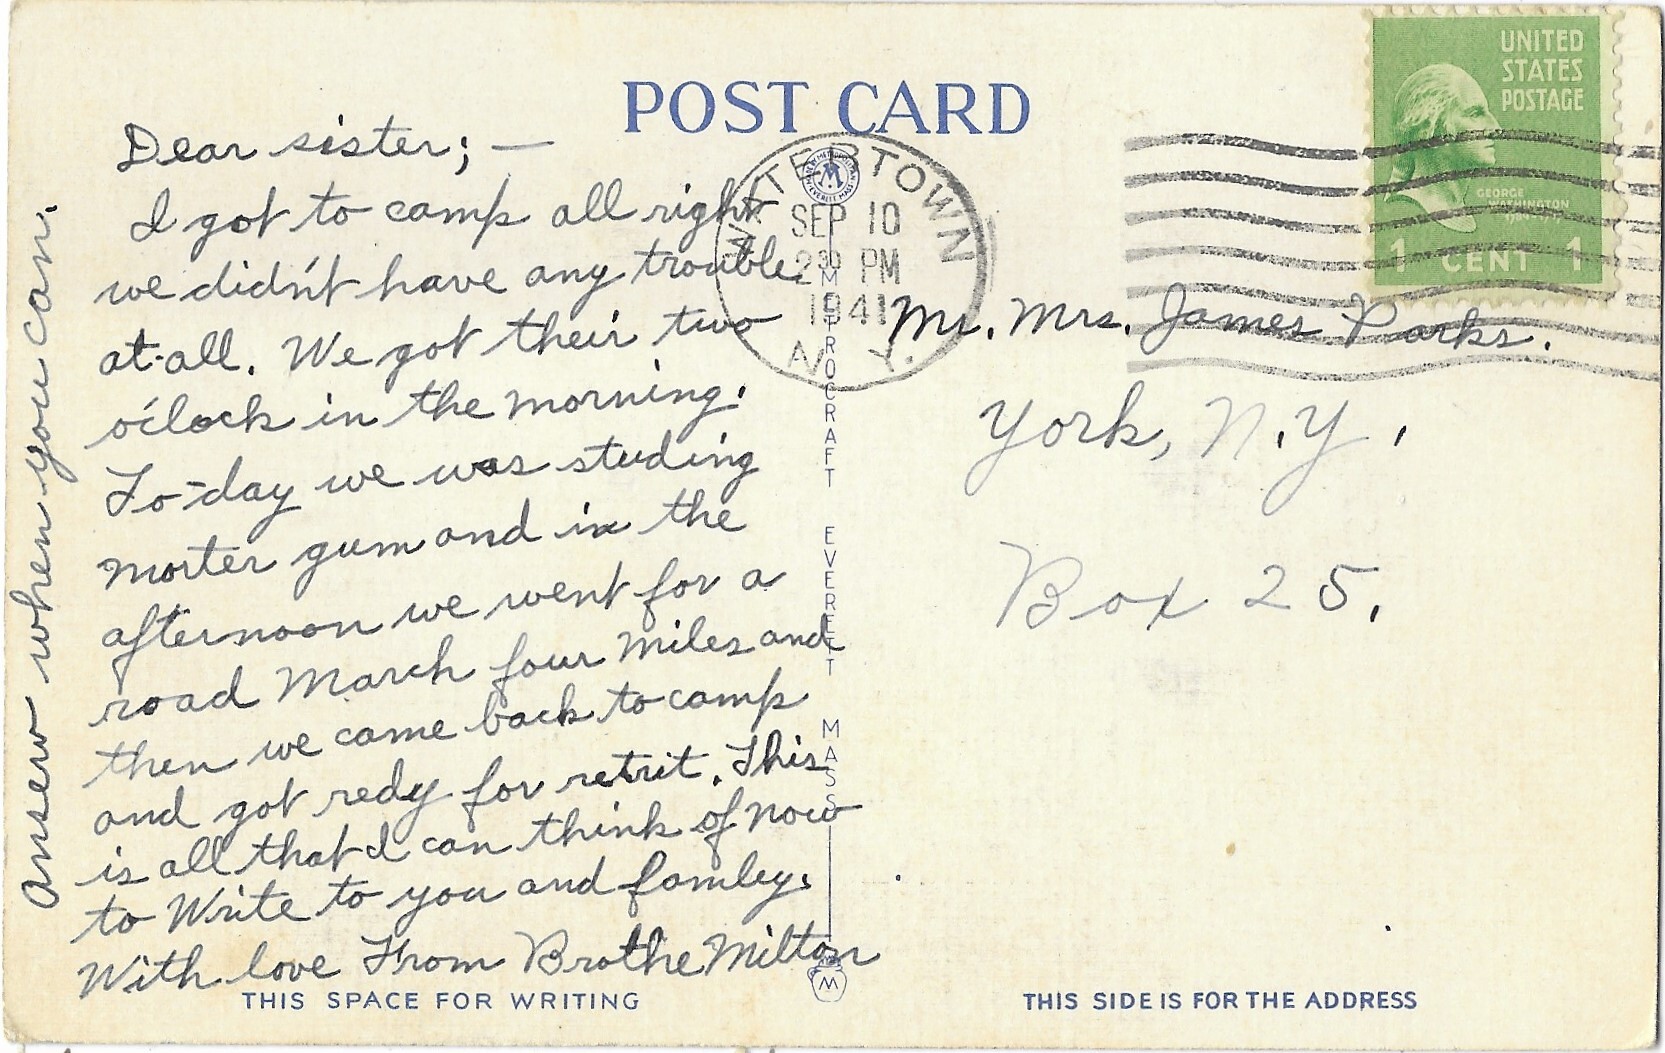 POST CARD
UNITED
STATES
POSTAGE
GEORGE
WASHINGTON
1 CENT 1
WATERTOWN
SEP 10
2 30 PM
1941
N. Y.
Dear sister; —
I got to camp all right
we didn't have any trouble
at-all. We got their two
o'clock in the morning.
To-day we was studing
morter gum and in the
afternoon we went for a
road March four miles and
then we came back to camp
and got redy for retrit. This
is all that I can think of now
to Write to you and famley.
With love From Brothe Milton
answer when you can.
Mr. Mrs. James Parks.
York, N.Y.
Box 25.
METROCRAFT EVERETT MASS
THIS SPACE FOR WRITING
THIS SIDE IS FOR THE ADDRESS
M